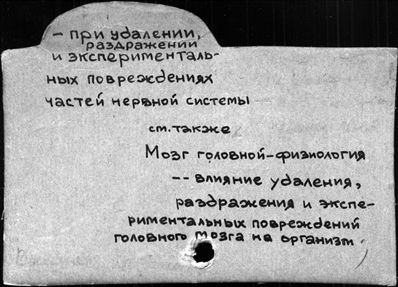 – при удалении,
раздражении
и эксперименталь-
ных повреждениях
частей нервной системы
см. также
Мозг головной-физиология
-- влияние удаления,
раздражения и экспе-
риментальных повреждений
головного мозга на организм